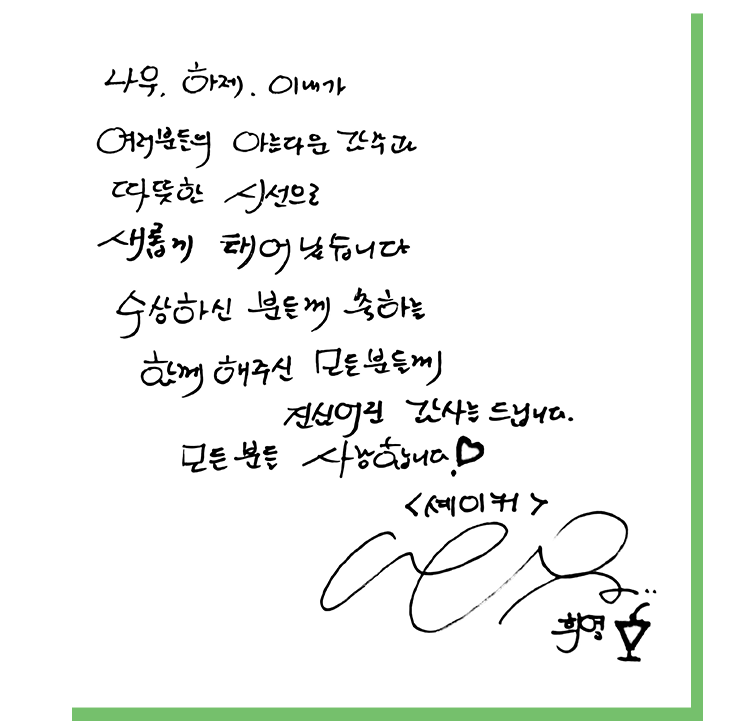 나우, 하제, 이내가
여러분들의 아름다운 간주와
따뜻한 시선으로
새롭게 태어났습니다
수상하신 분들께 축하를
함께 해주신 모든분들께
진심어린 감사를 드립니다.
모든 분들 사랑합니다!♡
<셰이커>
휘영